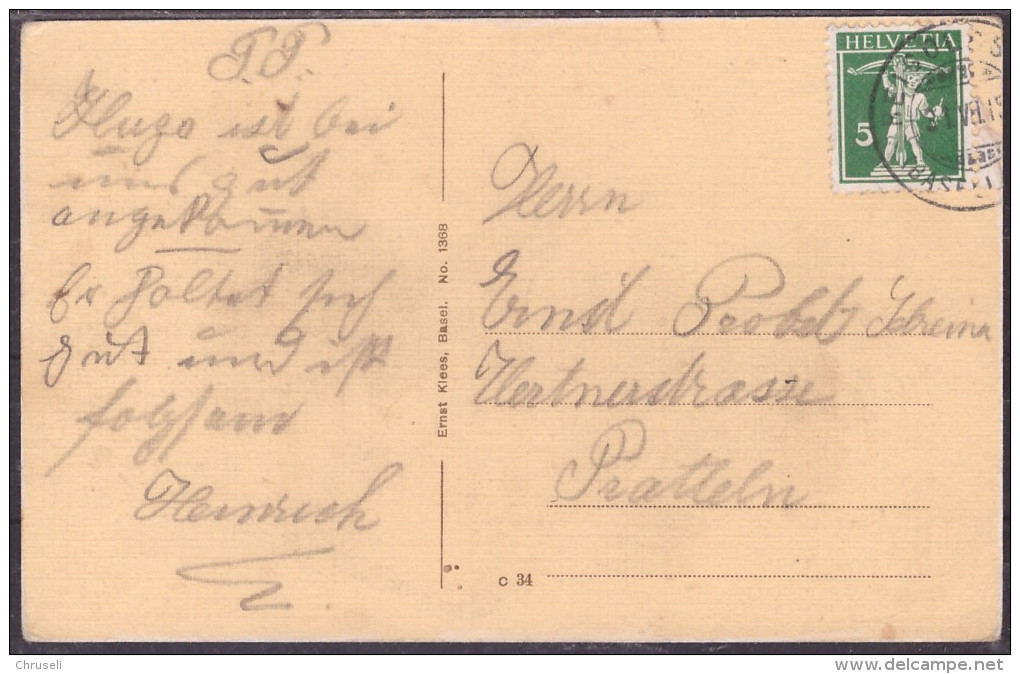 T.T.
Hugo ist bei
uns gut
angekommen
Er haltet sich
gut und ist
folgsam
Heinrich
Ernst Klees, Basel. No. 1368
HELVETIA
5
BASEL
Herrn
Ernst Probst Schreiner
Hertnerstrasse
Pratteln
c 34
Chruseli
delcampe.net